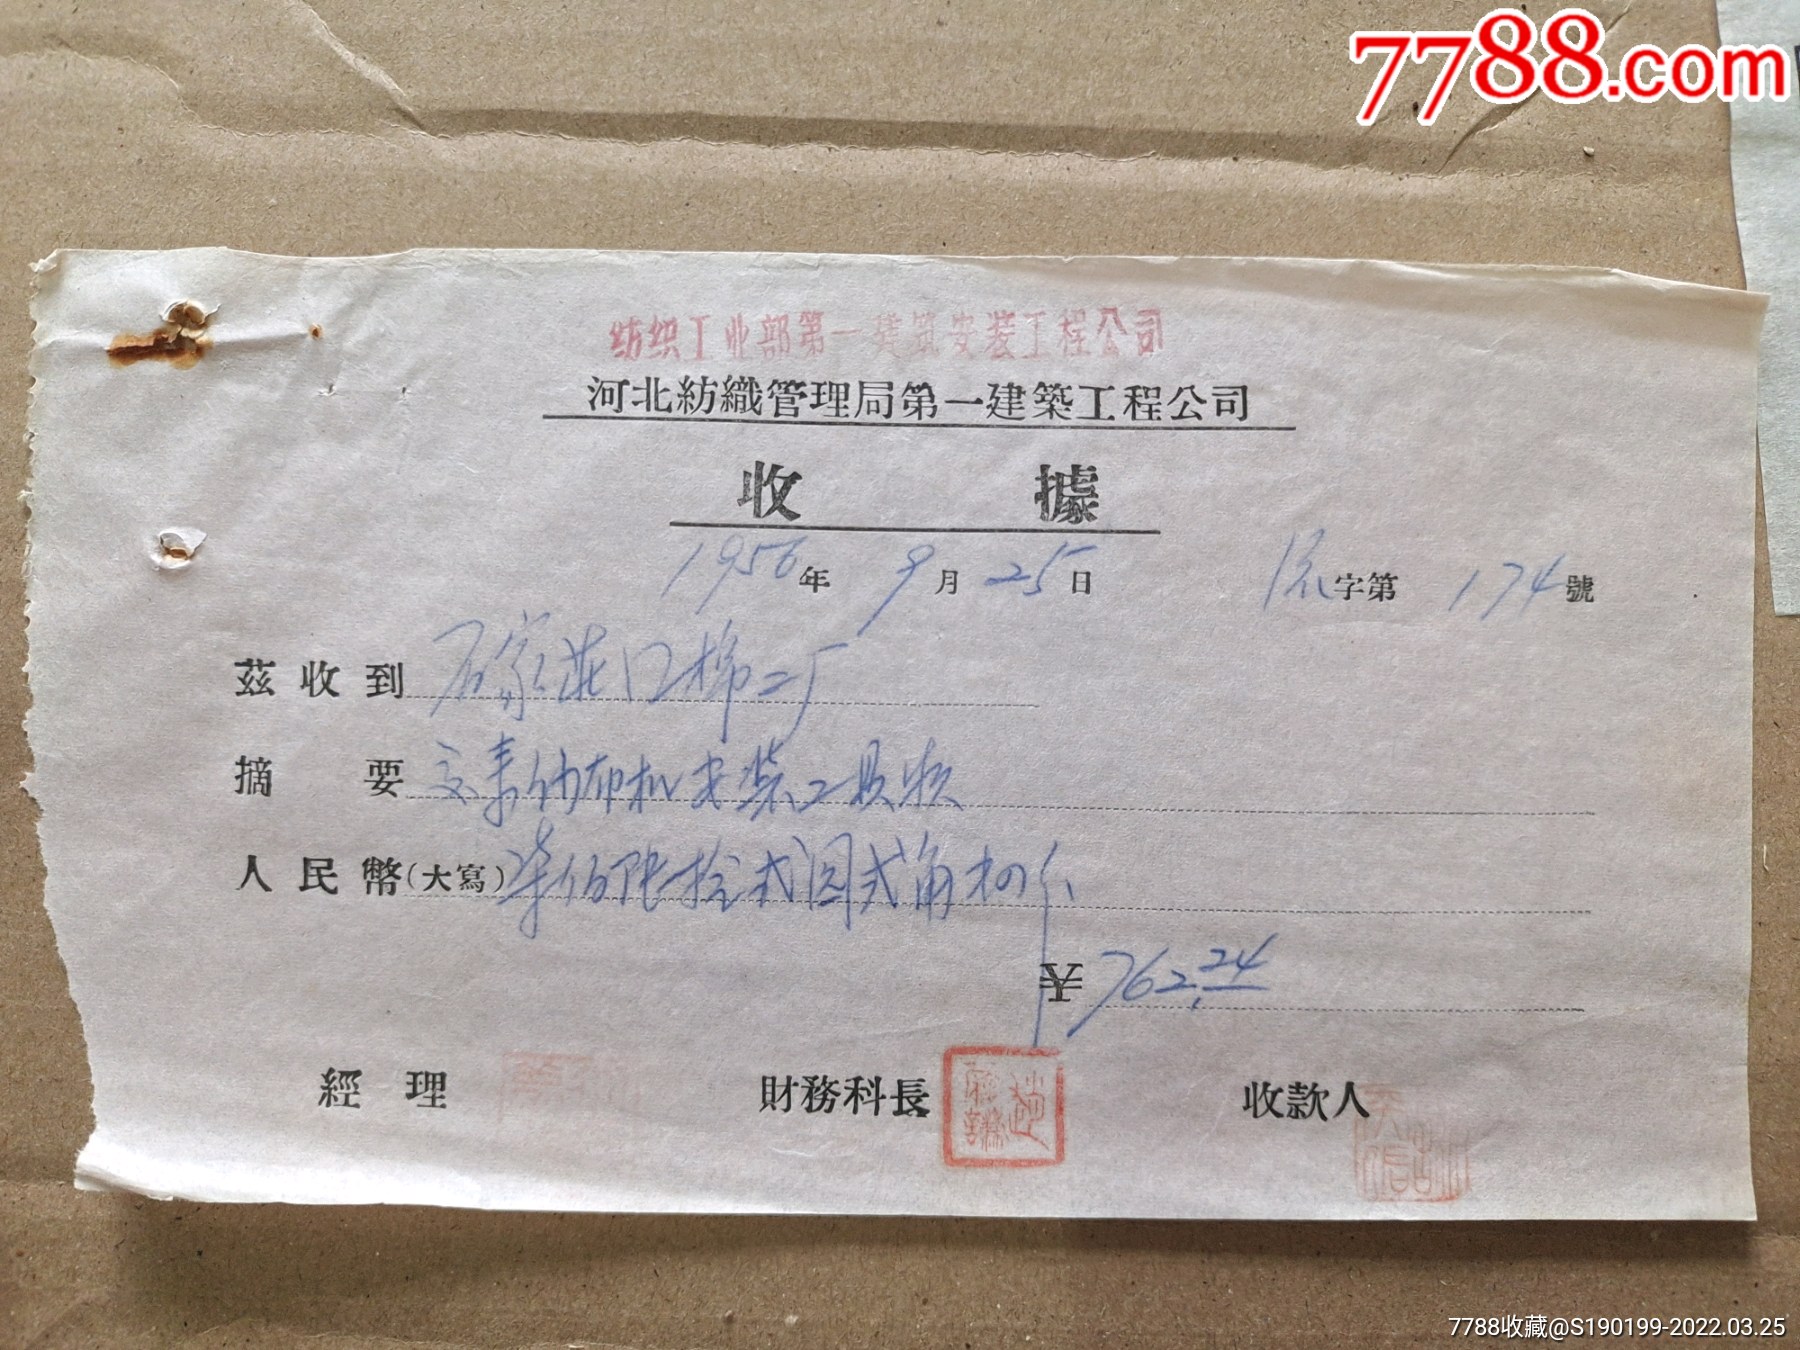 7788.com
纺织工业部第一建筑安装工程公司
河北紡織管理局第一建築工程公司
收 據
1956年 9月25日 字第 174 號
茲收到 石家庄 棉二厂
摘 要 布机安装工具款
人民幣(大寫) 柒佰陆拾弍圆弍角肆分
¥ 762.24
經 理 財務科長 趙 收款人
7788收藏@S190199-2022.03.25